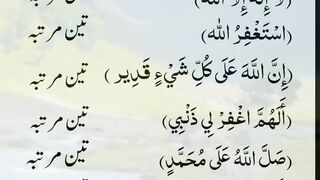 (لَا إِلٰهَ إِلَّا اللّٰه) تین مرتبہ
(اسْتَغْفِرُ اللّٰه)
(إِنَّ اللَّهَ عَلَى كُلِّ شَيْءٍ قَدِير) تین مرتبہ
(أَلَهُمَّ اغْفِرْ لِي ذَنْبِي) تین مرتبہ
(صَلَّ اللَّهُ عَلَى مُحَمَّدٍ) تین مرتبہ